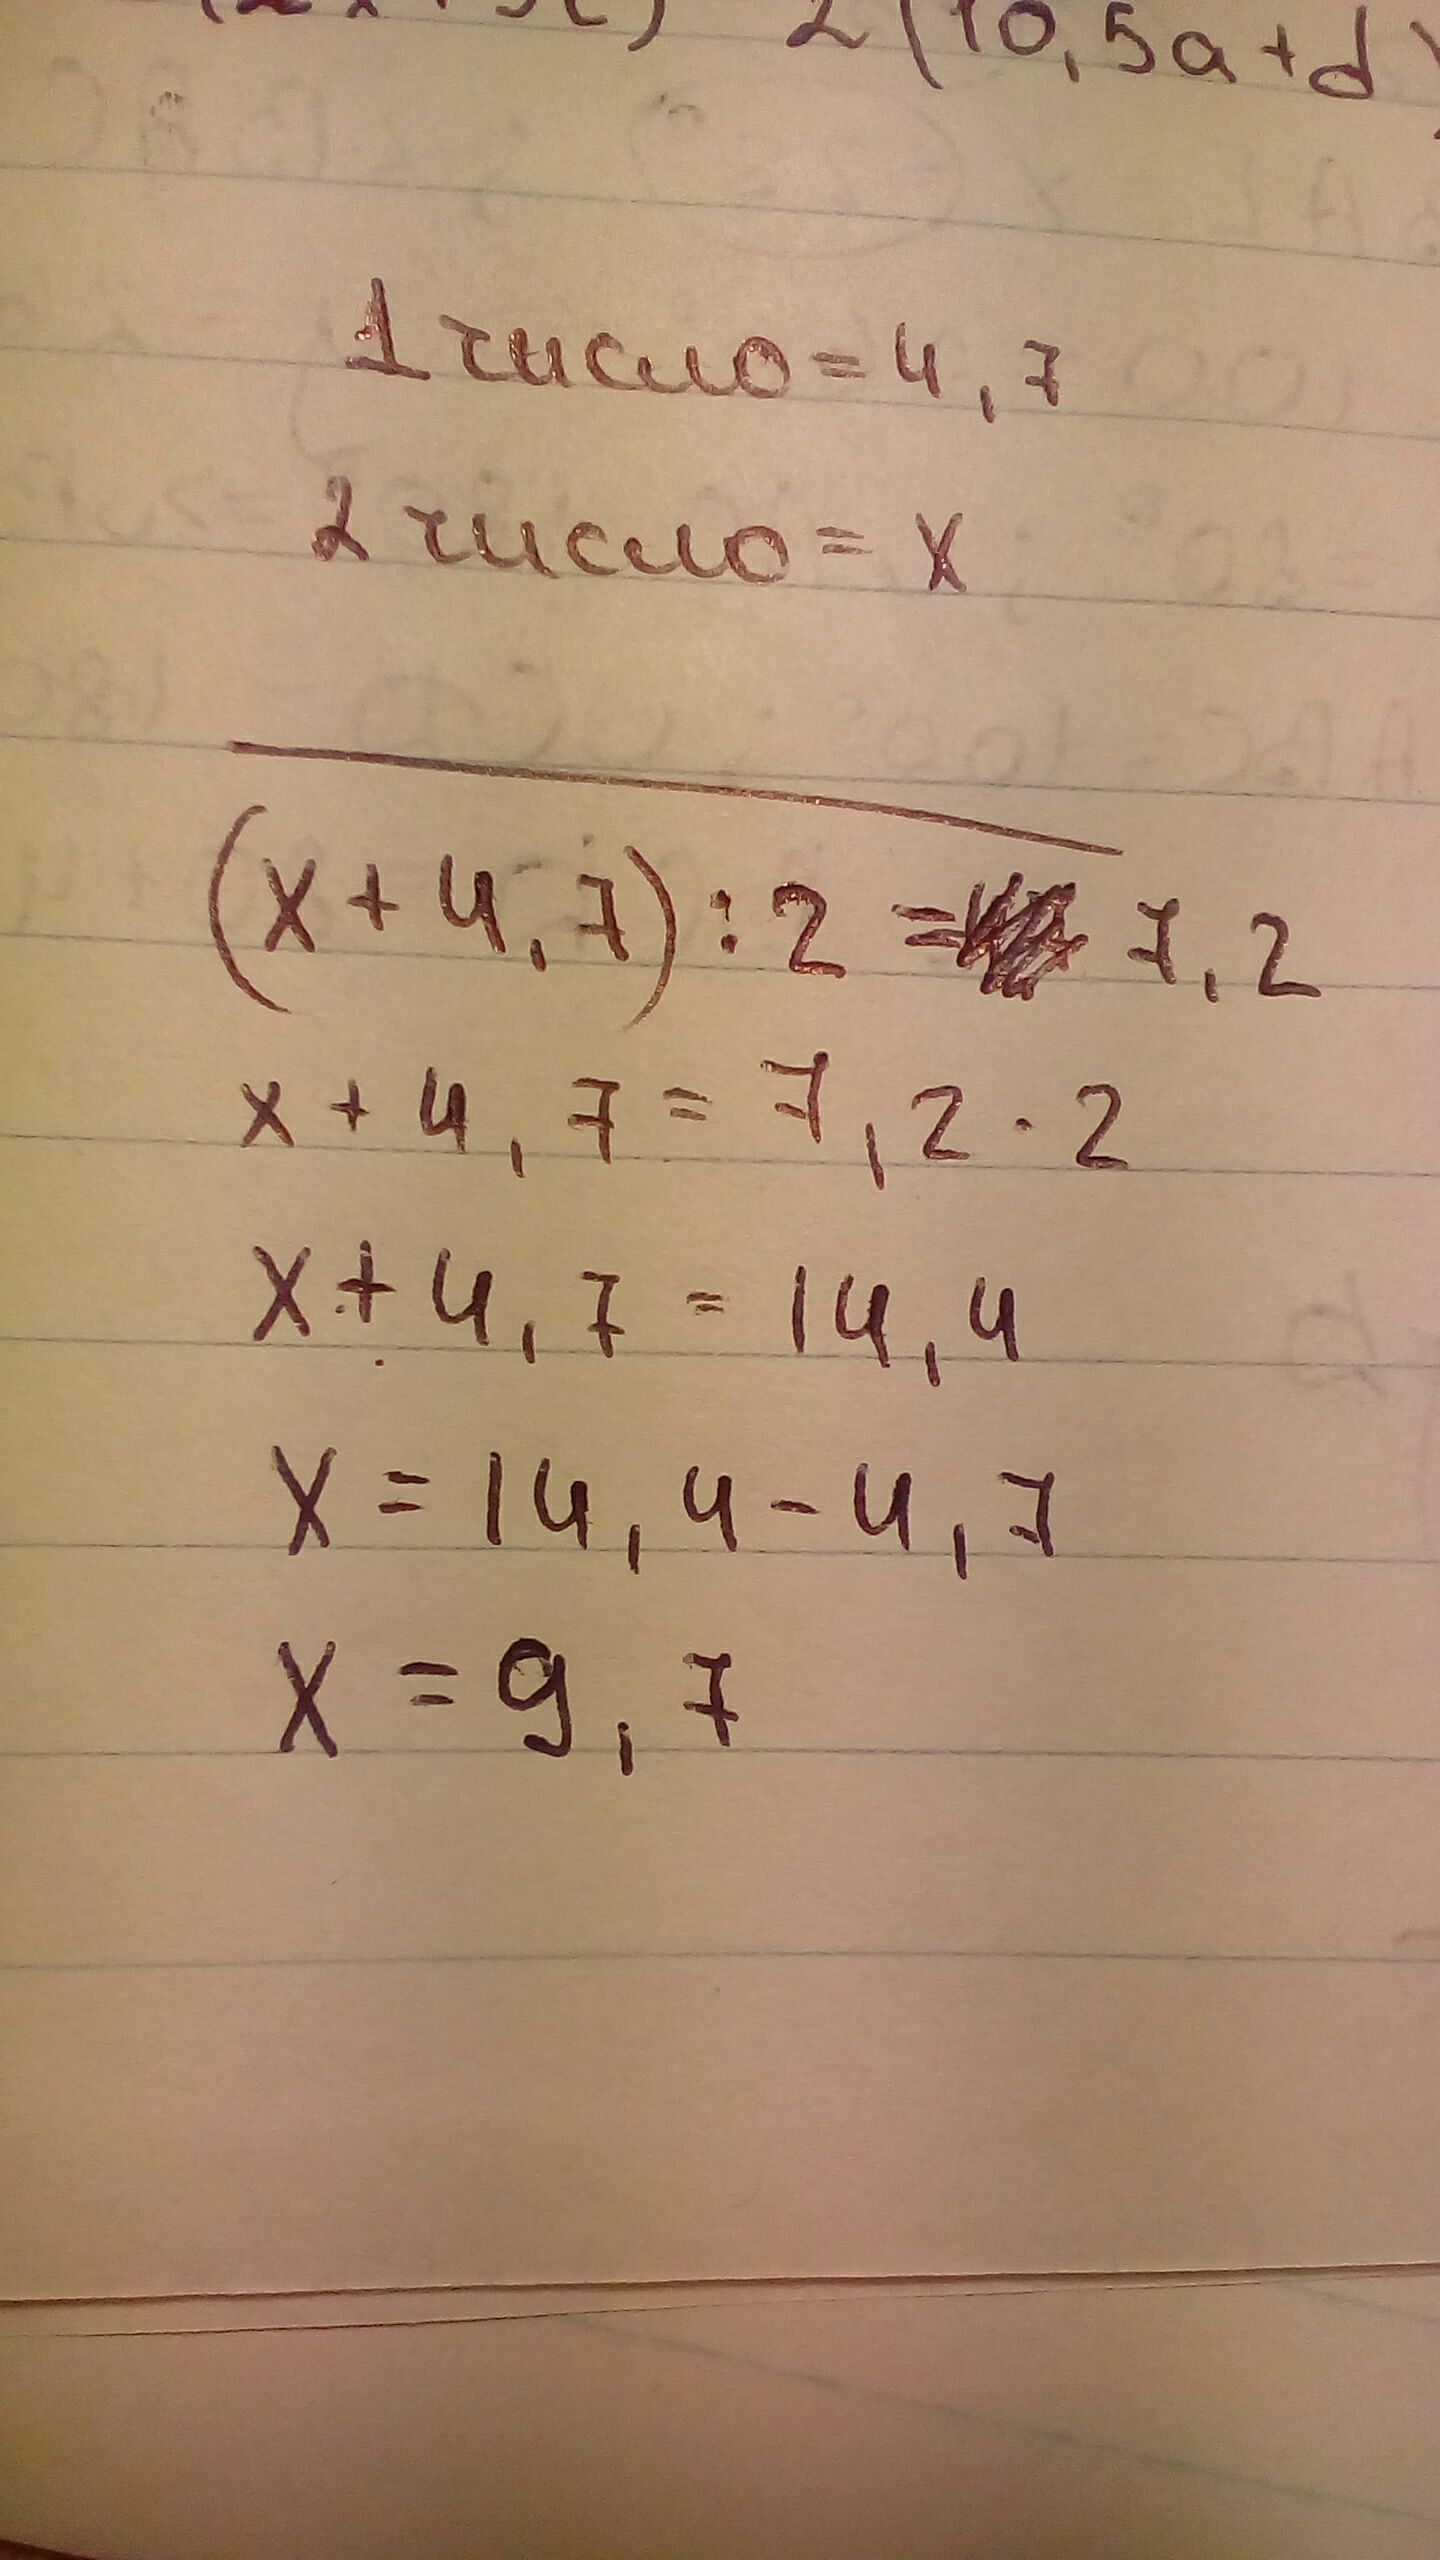 2(10,5a+d)
1 число = 4,7
2 число = x
(x+4,7):2 = 7,2
x+4,7=7,2·2
x+4,7=14,4
x=14,4-4,7
x=9,7